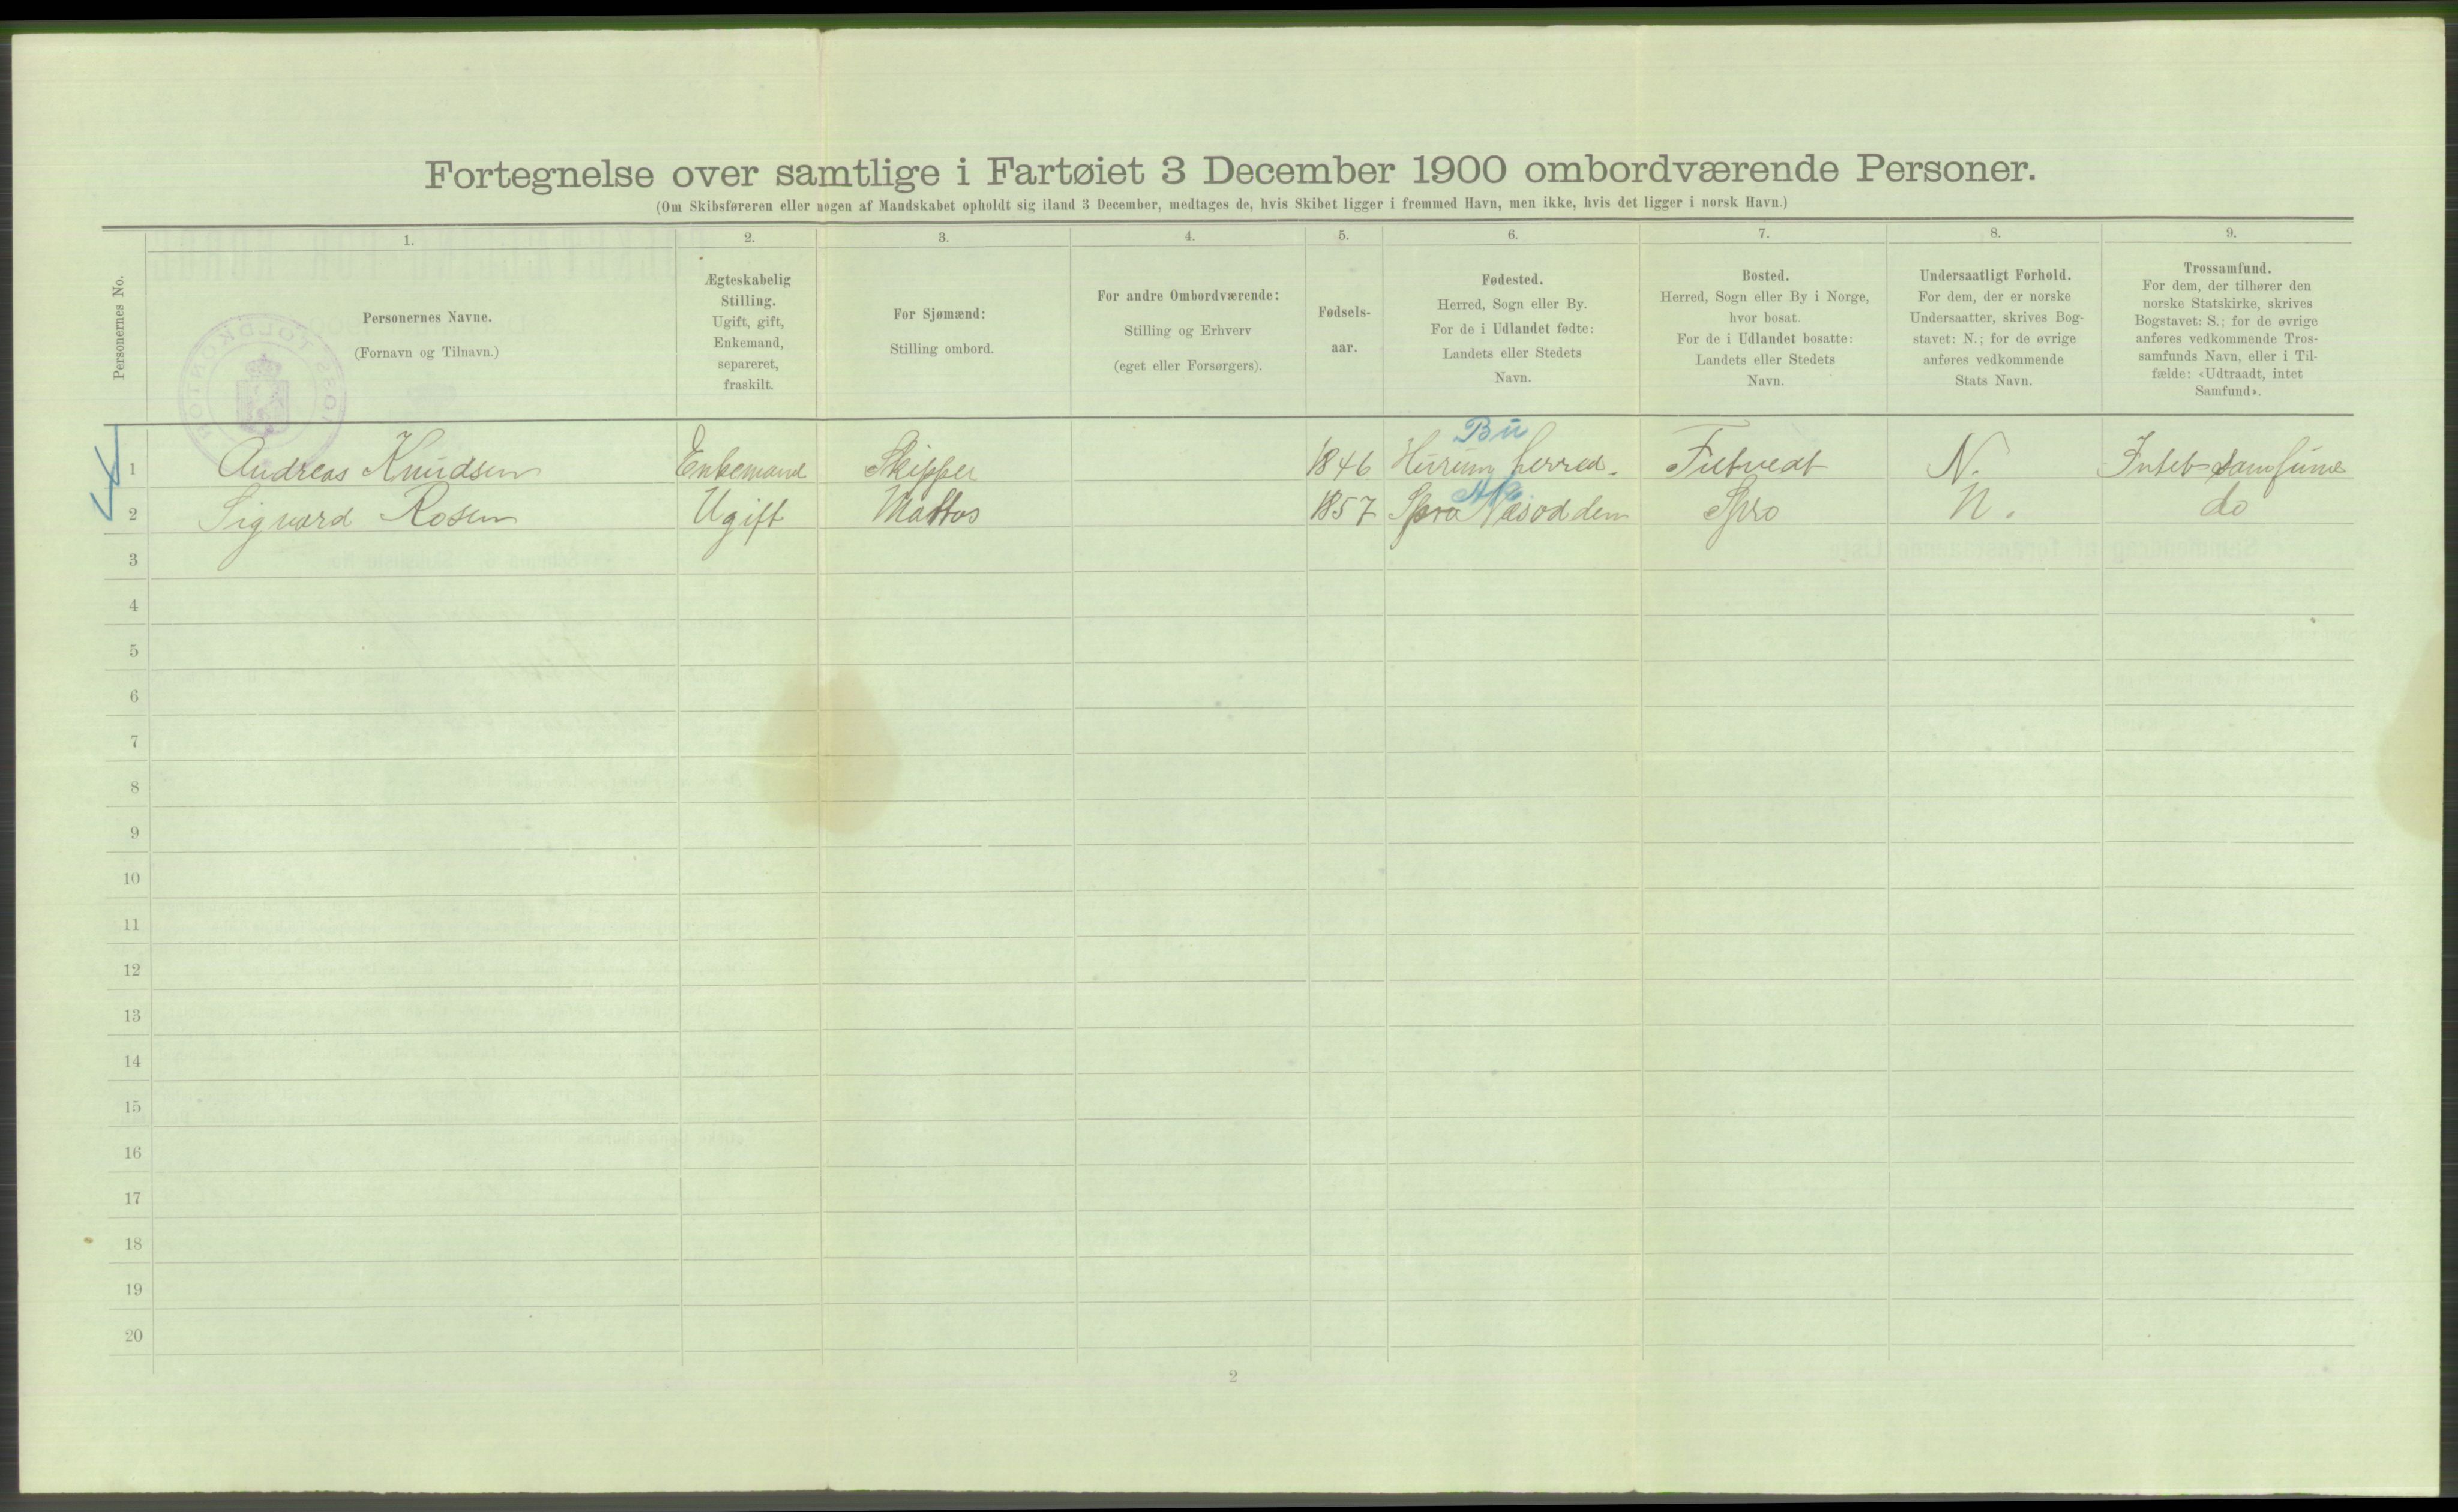 Fortegnelse over samtlige i Fartøiet 3 December 1900 ombordværende Personer.
(Om Skibsføreren eller nogen af Mandskabet opholdt sig iland 3 December, medtages de, hvis Skibet ligger i fremmed Havn, men ikke, hvis det ligger i norsk Havn.)
Personernes No.
1.
Personernes Navne.
(Fornavn og Tilnavn.)
2.
Ægteskabelig
Stilling.
Ugift, gift,
Enkemand,
separeret,
fraskilt.
3.
For Sjømænd:
Stilling ombord.
4.
For andre Ombordværende:
Stilling og Erhverv
(eget eller Forsørgers).
5.
Fødsels-
aar.
6.
Fødested.
Herred, Sogn eller By.
For de i Udlandet fødte:
Landets eller Stedets
Navn.
7.
Bosted.
Herred, Sogn eller By i Norge,
hvor bosat.
For de i Udlandet bosatte:
Landets eller Stedets
Navn.
8.
Undersaatligt Forhold.
For dem, der er norske
Undersaatter, skrives Bog-
stavet: N.; for de øvrige
anføres vedkommende
Stats Navn.
9.
Trossamfund.
For dem, der tilhører den
norske Statskirke, skrives
Bogstavet: S.; for de øvrige
anføres vedkommende Tros-
samfunds Navn, eller i Til-
fælde: «Udtraadt, intet
Samfund».
Bu
1 Andreas Knudsen Enkemand Skipper 1846 Hurum herred. Filtvedt N. Intet Samfund
Ak
2 Sigvard Rosen Ugift Matros 1857 Spro Næsodden Spro N. do
3
4
5
6
7
8
9
10
11
12
13
14
15
16
17
18
19
20
2